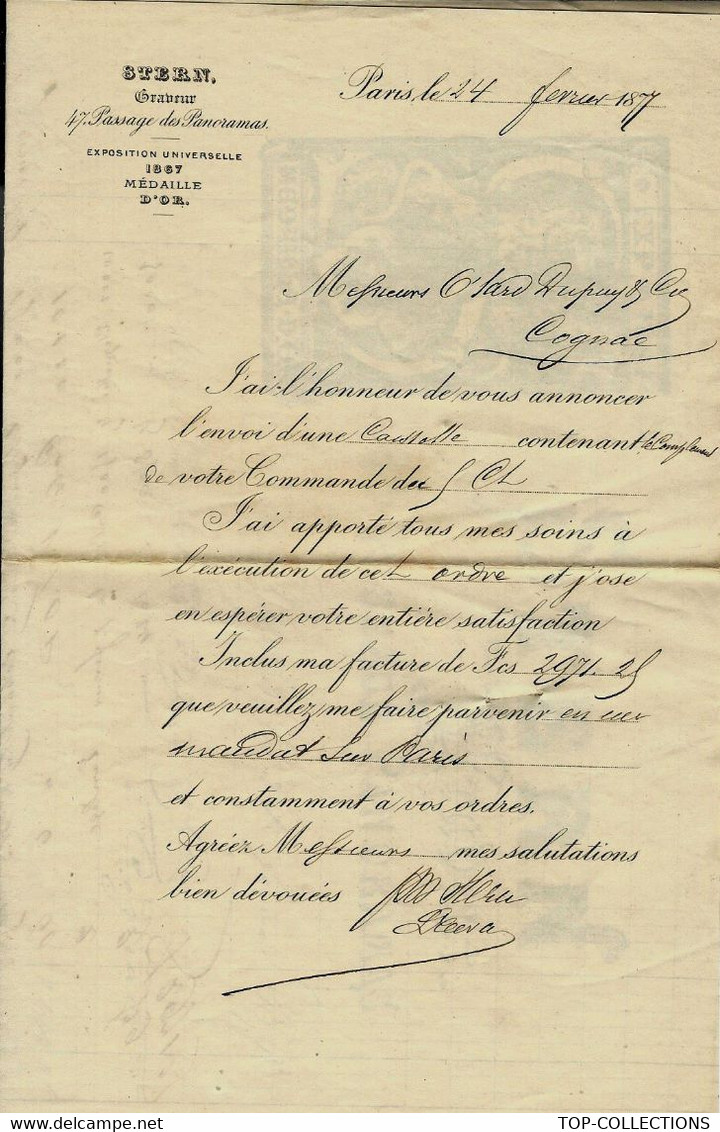 STERN,
Graveur
47, Passage des Panoramas.
EXPOSITION UNIVERSELLE
1867
MÉDAILLE
D'OR.
Paris, le 24 fevrier 1877
Messieurs Otard Dupuy & Cie
Cognac
J'ai l'honneur de vous annoncer
l'envoi d'une Caissette contenant le Complement
de votre Commande du 5 Ct
J'ai apporté tous mes soins à
l'exécution de cet ordre et j'ose
en espérer votre entière satisfaction
Inclus ma facture de Fcs 2971.25
que veuillez me faire parvenir en un
mandat sur Paris
et constamment à vos ordres.
Agréez Messieurs mes salutations
bien dévouées Stern
TOP-COLLECTIONS